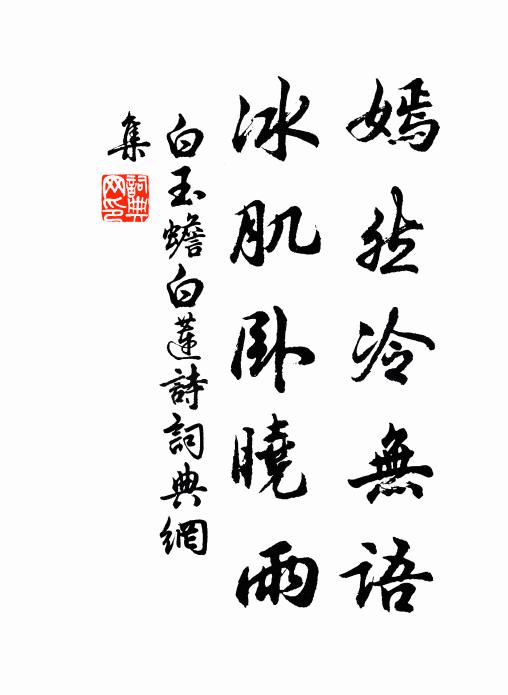 嫣然冷無語
冰肌卧曉雨
白玉蟾白蓮詩詞典網
集
詞典
网印